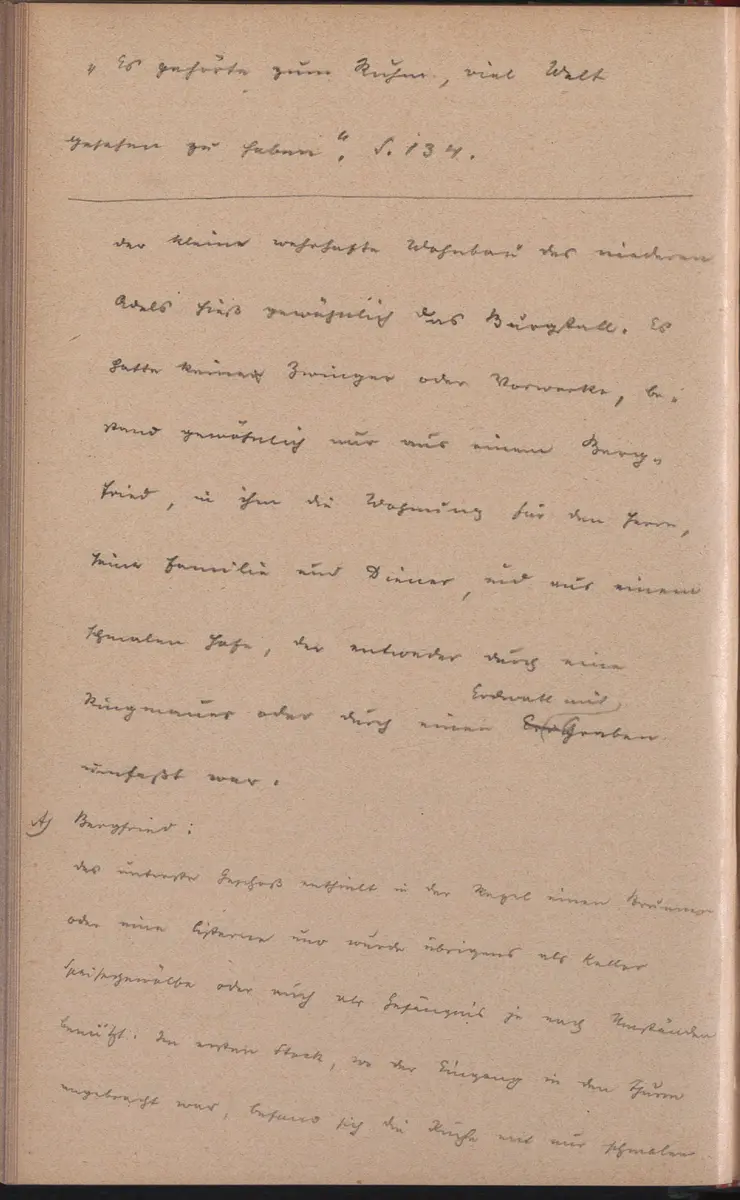 „Es gehörte zum Ruhm, viel Welt
gesehen zu haben“. S. 134.
der kleine wehrhafte Wohnbau des niederen
Adels hieß gewöhnlich das Burgstall. Es
hatte keine Zwinger oder Vorwerke, be-
stand gewöhnlich nur aus einem Berg-
fried, in ihm die Wohnung für den Herrn,
seine Familie und Diener, und aus einem
schmalen Hofe, der entweder durch eine
Erdwall mit
Ringmauer oder durch einen Graben
umfaßt war.
A) Bergfried:
das unterste Geschoß enthielt in der Regel einen Brunnen
oder eine Cisterne und wurde übrigens als Keller
Speisegewölbe oder auch als Gefängnis je nach Umständen
benützt. Im ersten Stock, wo der Eingang in den Thurm
angebracht war, befand sich die Küche mit nur schmalen